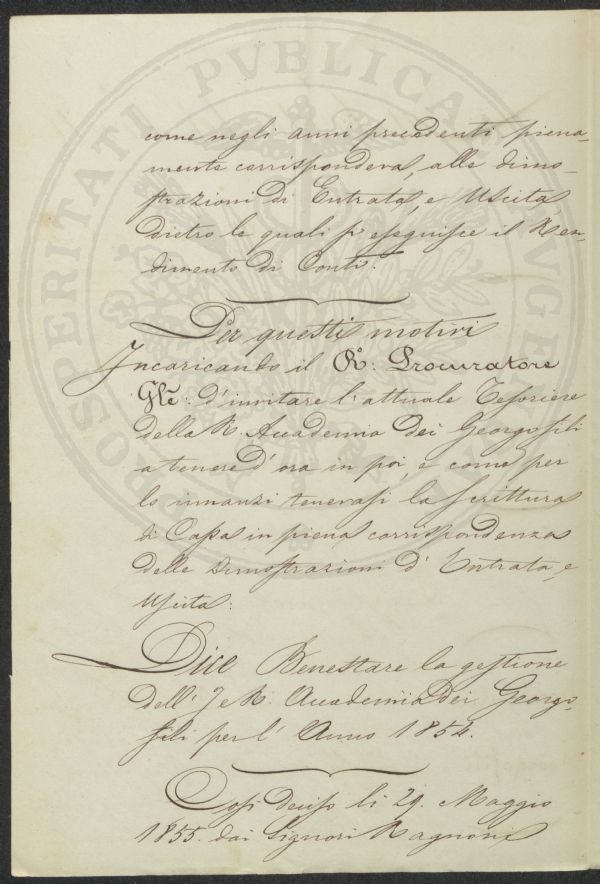 PROSPERITATI PVBLICAE AVGENDAE
come negli anni precedenti piena-
mente corrispondeva, alle dimo-
strazioni di Entrata, e Uscita,
dietro le quali si eseguisce il Ren-
dimento di Conti.
Per questi motivi
Incaricando il R: Procuratore
Gle: d'invitare l'attuale Tesoriere
della R. Accademia dei Georgofili
a tenere d'ora in poi, e come per
lo innanzi tenevasi la scrittura
di Cassa in piena corrispondenza
delle Dimostrazioni d'Entrata, e
Uscita:
Dice Benestare la gestione
dell'I e R. Accademia dei Georgo-
fili per l'Anno 1854.
Così deciso li 29. Maggio
1855. dai Signori Ragnoni